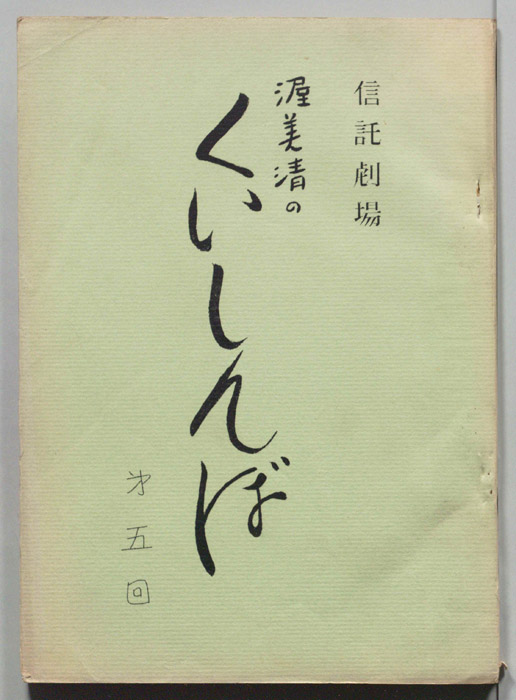 信託劇場
渥美清の
くいしんぼ
才五回